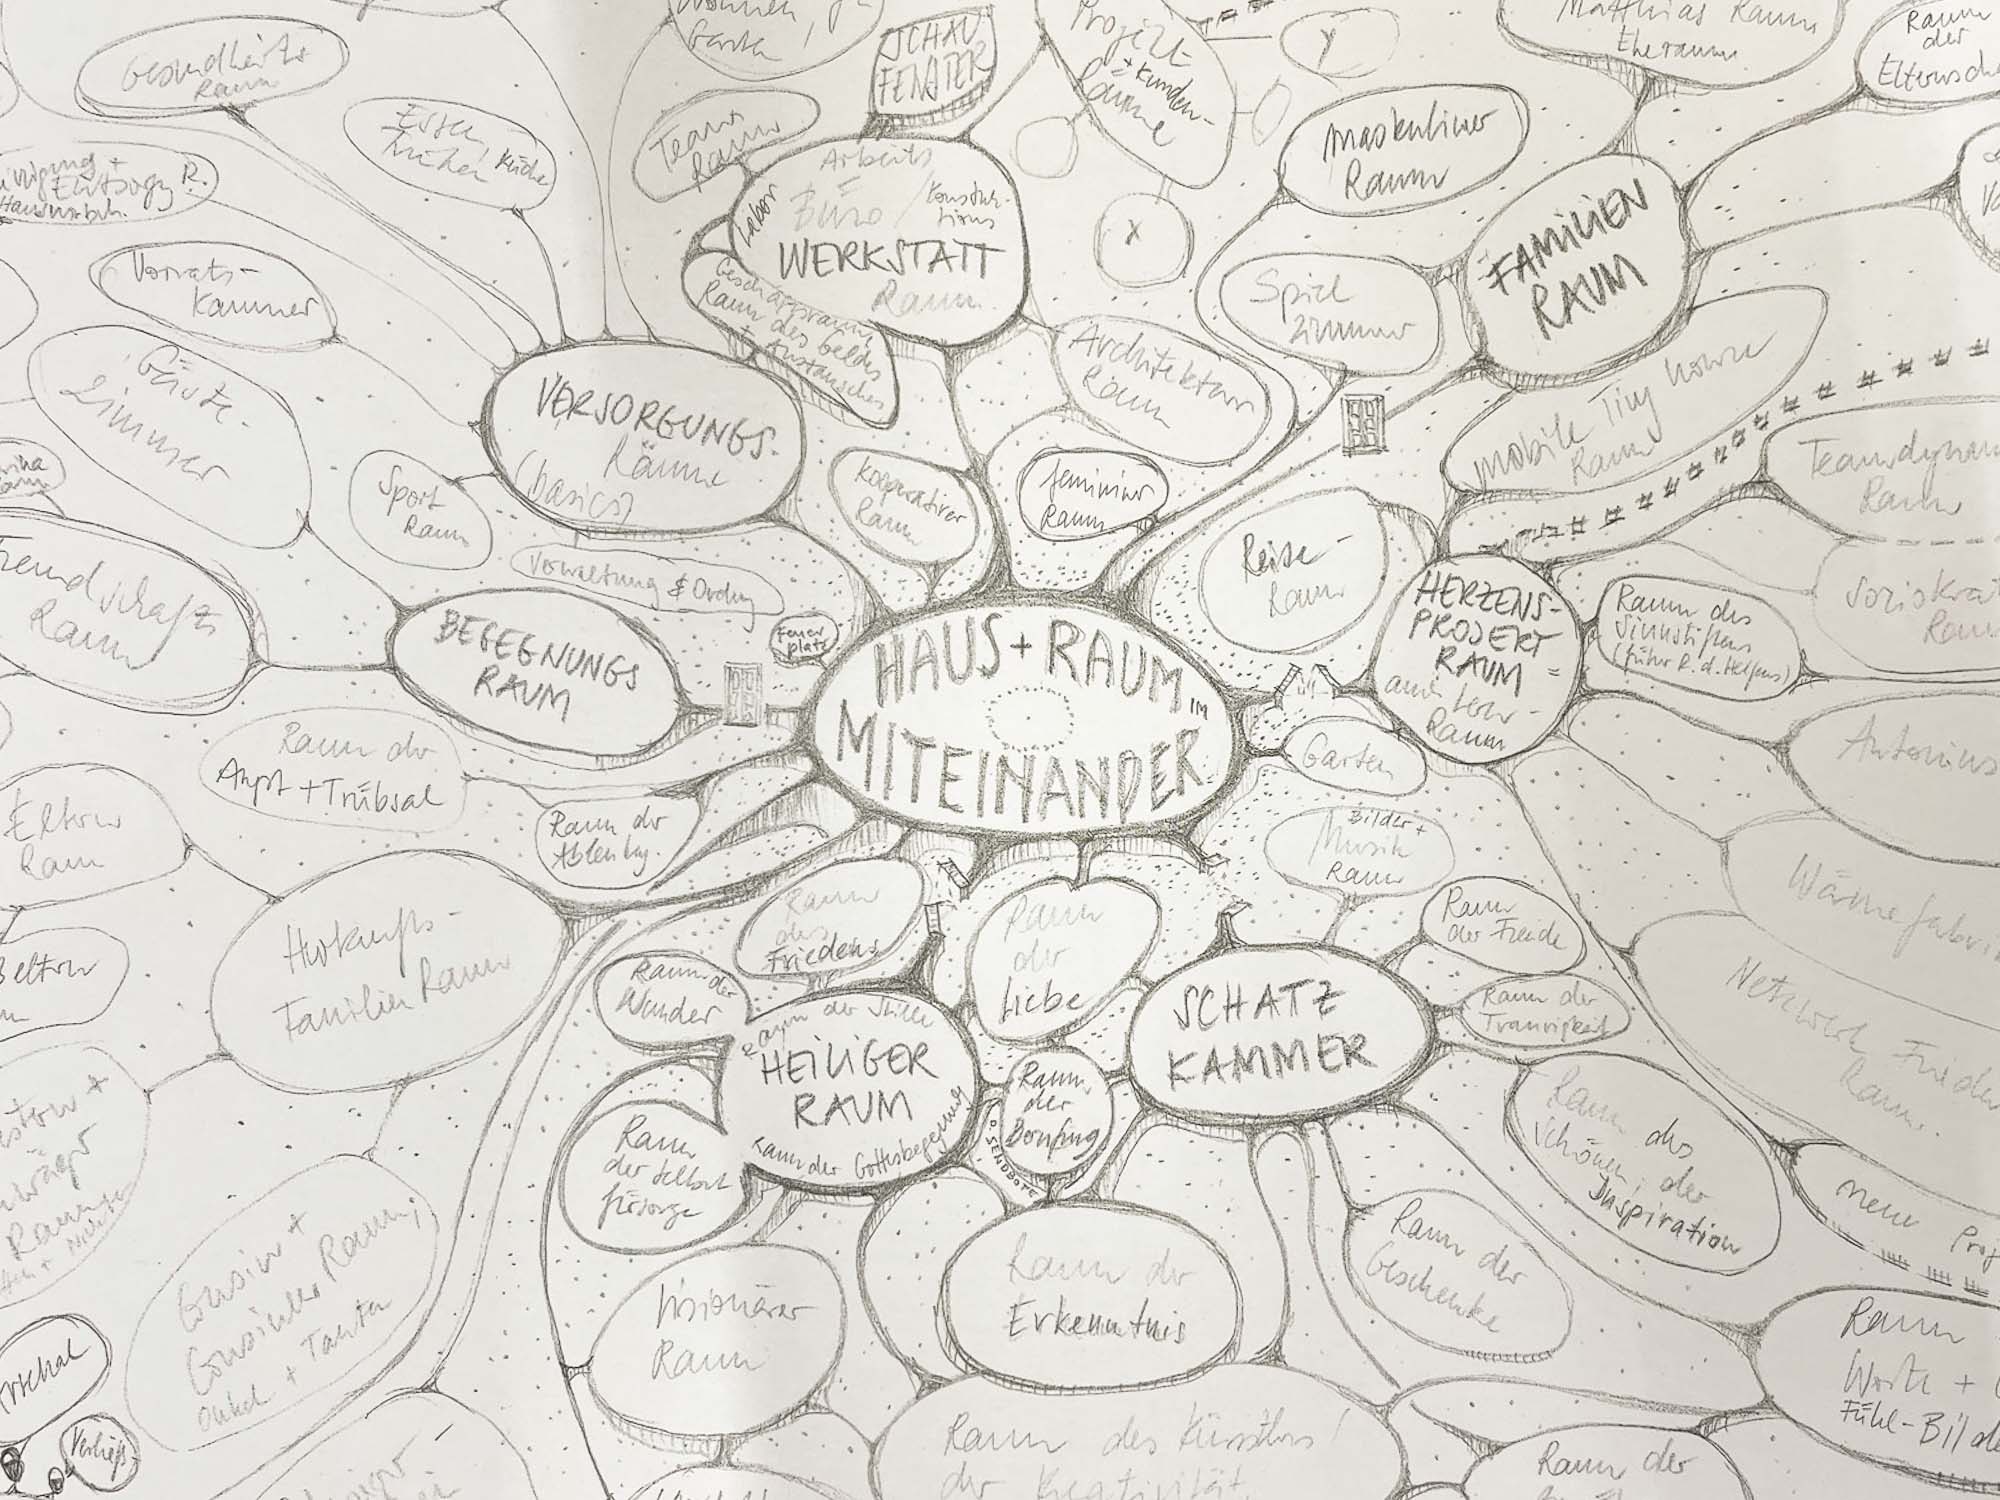 Gesundheits
Raum
Garten
SCHAU
FENSTER
Projekt
+ Kunden-
Räume
y
Matthias Raum
Raum
der
Essen,
Küche
Team
Raum
Arbeits
Büro /
WERKSTATT
Raum
Labor
x
maskuliner
Raum
FAMILIEN
RAUM
Spiel
zimmer
Vorrats-
Kammer
Gäste-
Zimmer
Geschäftsraum,
Raum des Geldes
+ Austausches
Architektur
Raum
mobile Tiny house
Raum
VERSORGUNGS-
Räume
(basics)
Sport
Raum
kooperativer
Raum
femininer
Raum
Teamdynam
Raum
Reise-
Raum
Verwaltung & Ordng
Freundschafts
Raum
BEGEGNUNGS
RAUM
Feuer
platz
HAUS + RAUM IM
MITEINANDER
HERZENS-
PROJEKT
RAUM =
Raum
Raum des
Sinnstiftens
(früher R. d. Helfens)
Soziokrat
Raum
Garten
Antonius
Raum der
Angst + Trübsal
Raum der
Ablenkg.
Eltern
Raum
Bilder +
Musik
Raum
Wärmefabri
Raum
des
Friedens
Raum
der
Liebe
Raum
der Freude
Herkunfts-
Familien Raum
Raum der
Wunder
Raum der Stille
HEILIGER
RAUM
Raum der Gottesbegegnung
SCHATZ
KAMMER
Raum der
Traurigkeit
Netzwerk Frieden
Raum
Raum
der
Berufung
SENDBOTE
Raum
der Selbst
fürsorge
Raum des
Schönen, der
Inspiration
neue Proj
Raum der
Geschenke
Cousin +
Cousinen Raum,
Onkel + Tanten
Visionärer
Raum
Raum der
Erkenntnis
Raum
Worte +
Fühl-Bilde
Verließ
Raum des Künstlers/
der Kreativität
Raum der